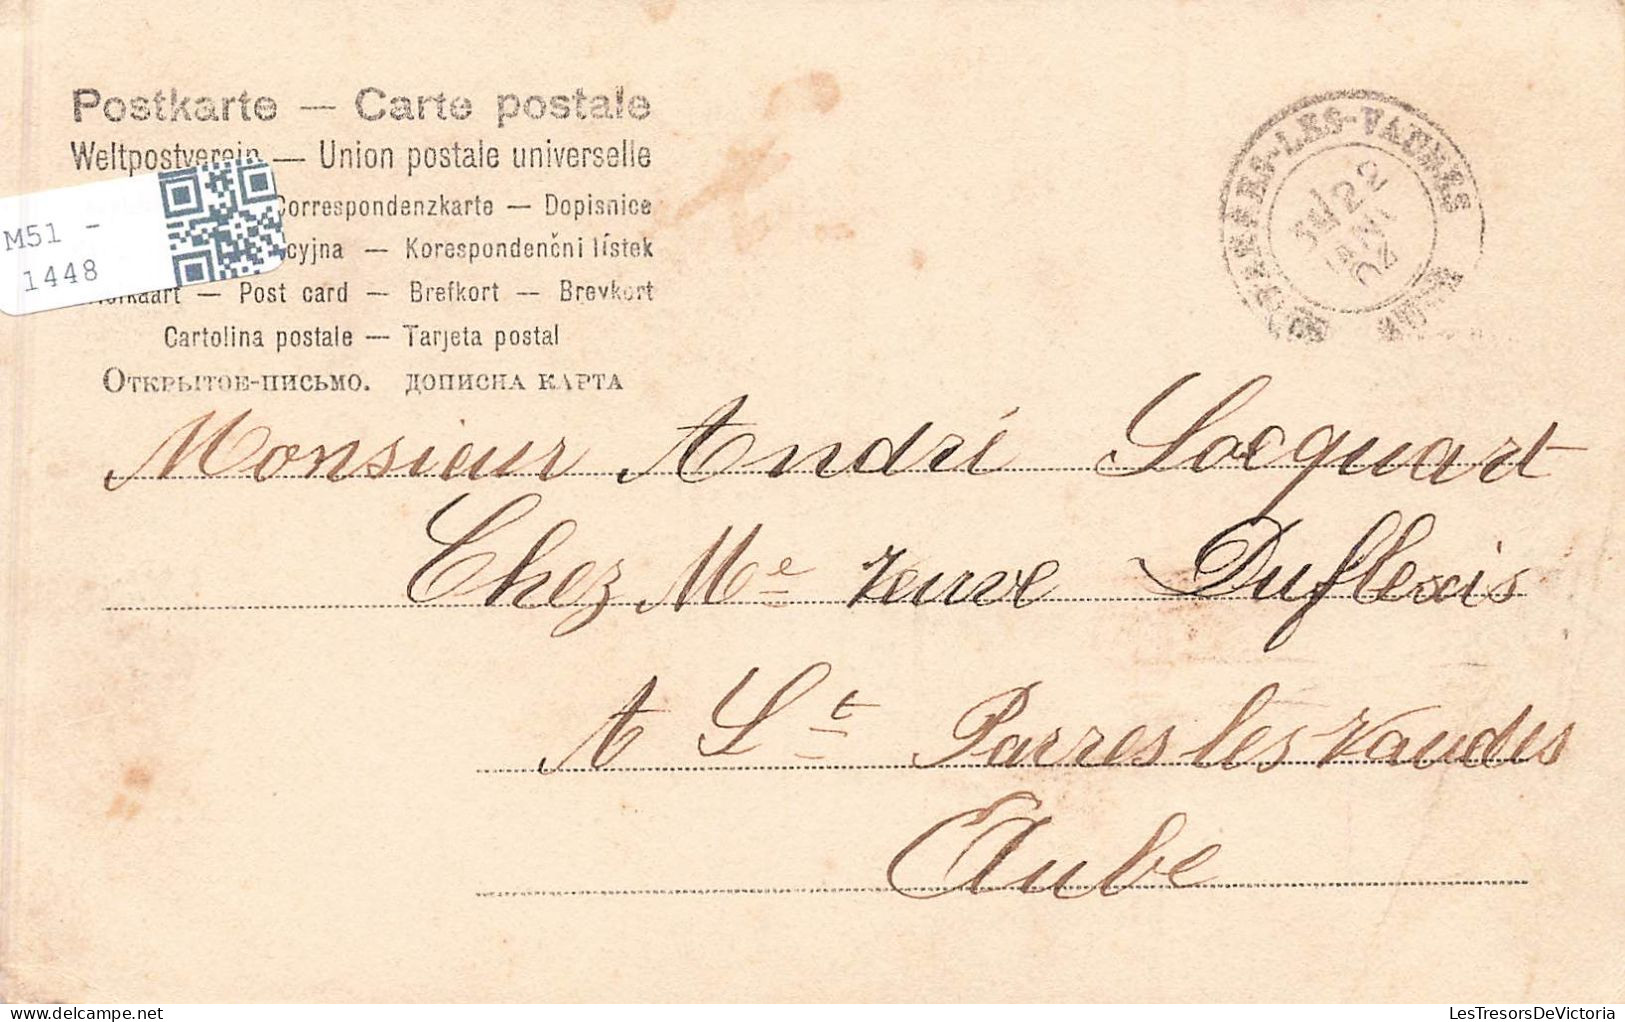 Postkarte — Carte postale
Weltpostverein — Union postale universelle
Correspondenzkarte — Dopisnice
cyjna — Korespondenční lístek
— Post card — Brefkort — Brevkort
Cartolina postale — Tarjeta postal
Открытое-письмо. дописна карта
M51 -
1448
PARRES-LES-VAUDES
22
JANV
04
AUBE
Monsieur André Locquart
Chez Me Veuve Duflexis
A St Parres les Vaudes
Aube
LesTresorsDeVictoria